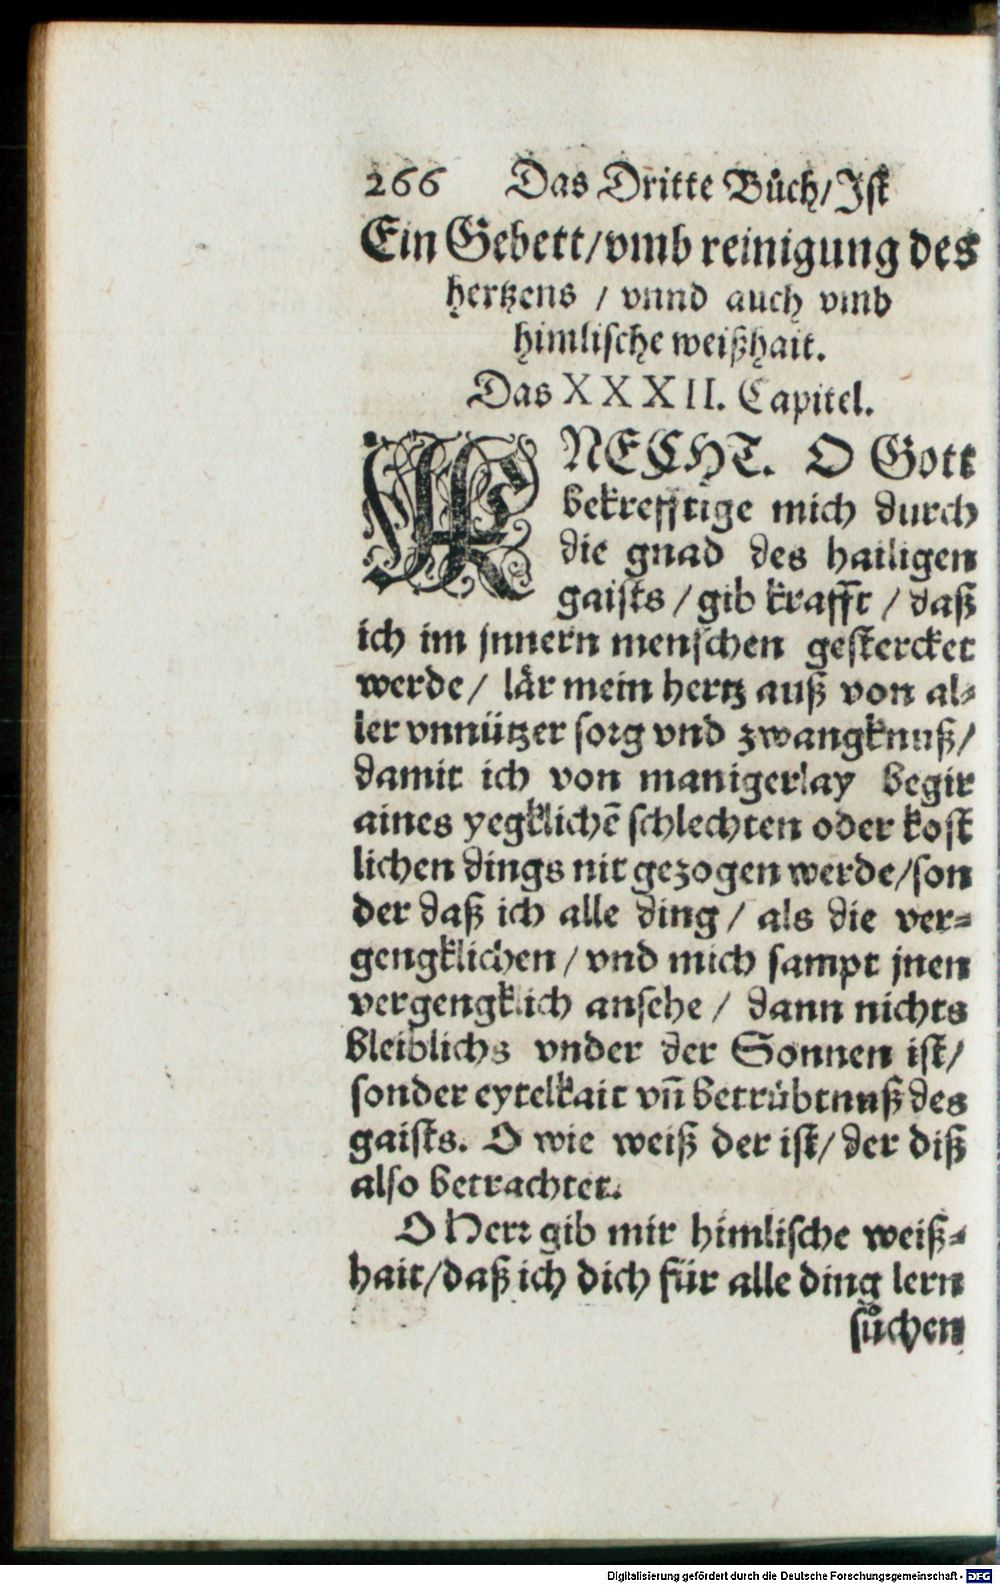 266 Das Dritte Bůch/Ist
Ein Gebett/vmb reinigung des
hertzens / vnnd auch vmb
himlische weißhait.
Das XXXII. Capitel.
KNECHT. O Gott
bekrefftige mich durch
die gnad des hailigen
gaists / gib krafft / daß
ich im jnnern menschen gestercket
werde / lär mein hertz auß von al-
ler vnnützer sorg vnd zwangknuß/
damit ich von manigerlay begir
aines yegklichē schlechten oder kost
lichen dings nit gezogen werde/son
der daß ich alle ding / als die ver-
gengklichen / vnd mich sampt jnen
vergengklich ansehe / dann nichts
bleiblichs vnder der Sonnen ist/
sonder eytelkait vñ betrübtnuß des
gaists. O wie weiß der ist/ der diß
also betrachtet.
O Herr gib mir himlische weiß-
hait/daß ich dich für alle ding lern
sůchen
Digitalisierung gefördert durch die Deutsche Forschungsgemeinschaft - DFG